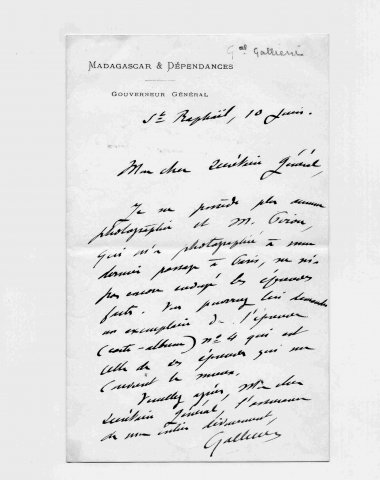 Gal Gallieni
MADAGASCAR & DÉPENDANCES
GOUVERNEUR GÉNÉRAL
St Raphaël, 10 Juin.
Mon cher Secrétaire Général,
Je ne possède plus aucune
photographie et M. Pirou,
qui m'a photographié à mon
dernier passage à Paris, ne m'a
pas encore envoyé les épreuves
faites. Vous pourrez lui demander
un exemplaire de l'épreuve
(carte-album) no 4 qui est
celle de ces épreuves qui me
convient le mieux.
Veuillez agréer, Mon cher
Secrétaire Général, l'assurance
de mon entier dévouement,
Gallieni